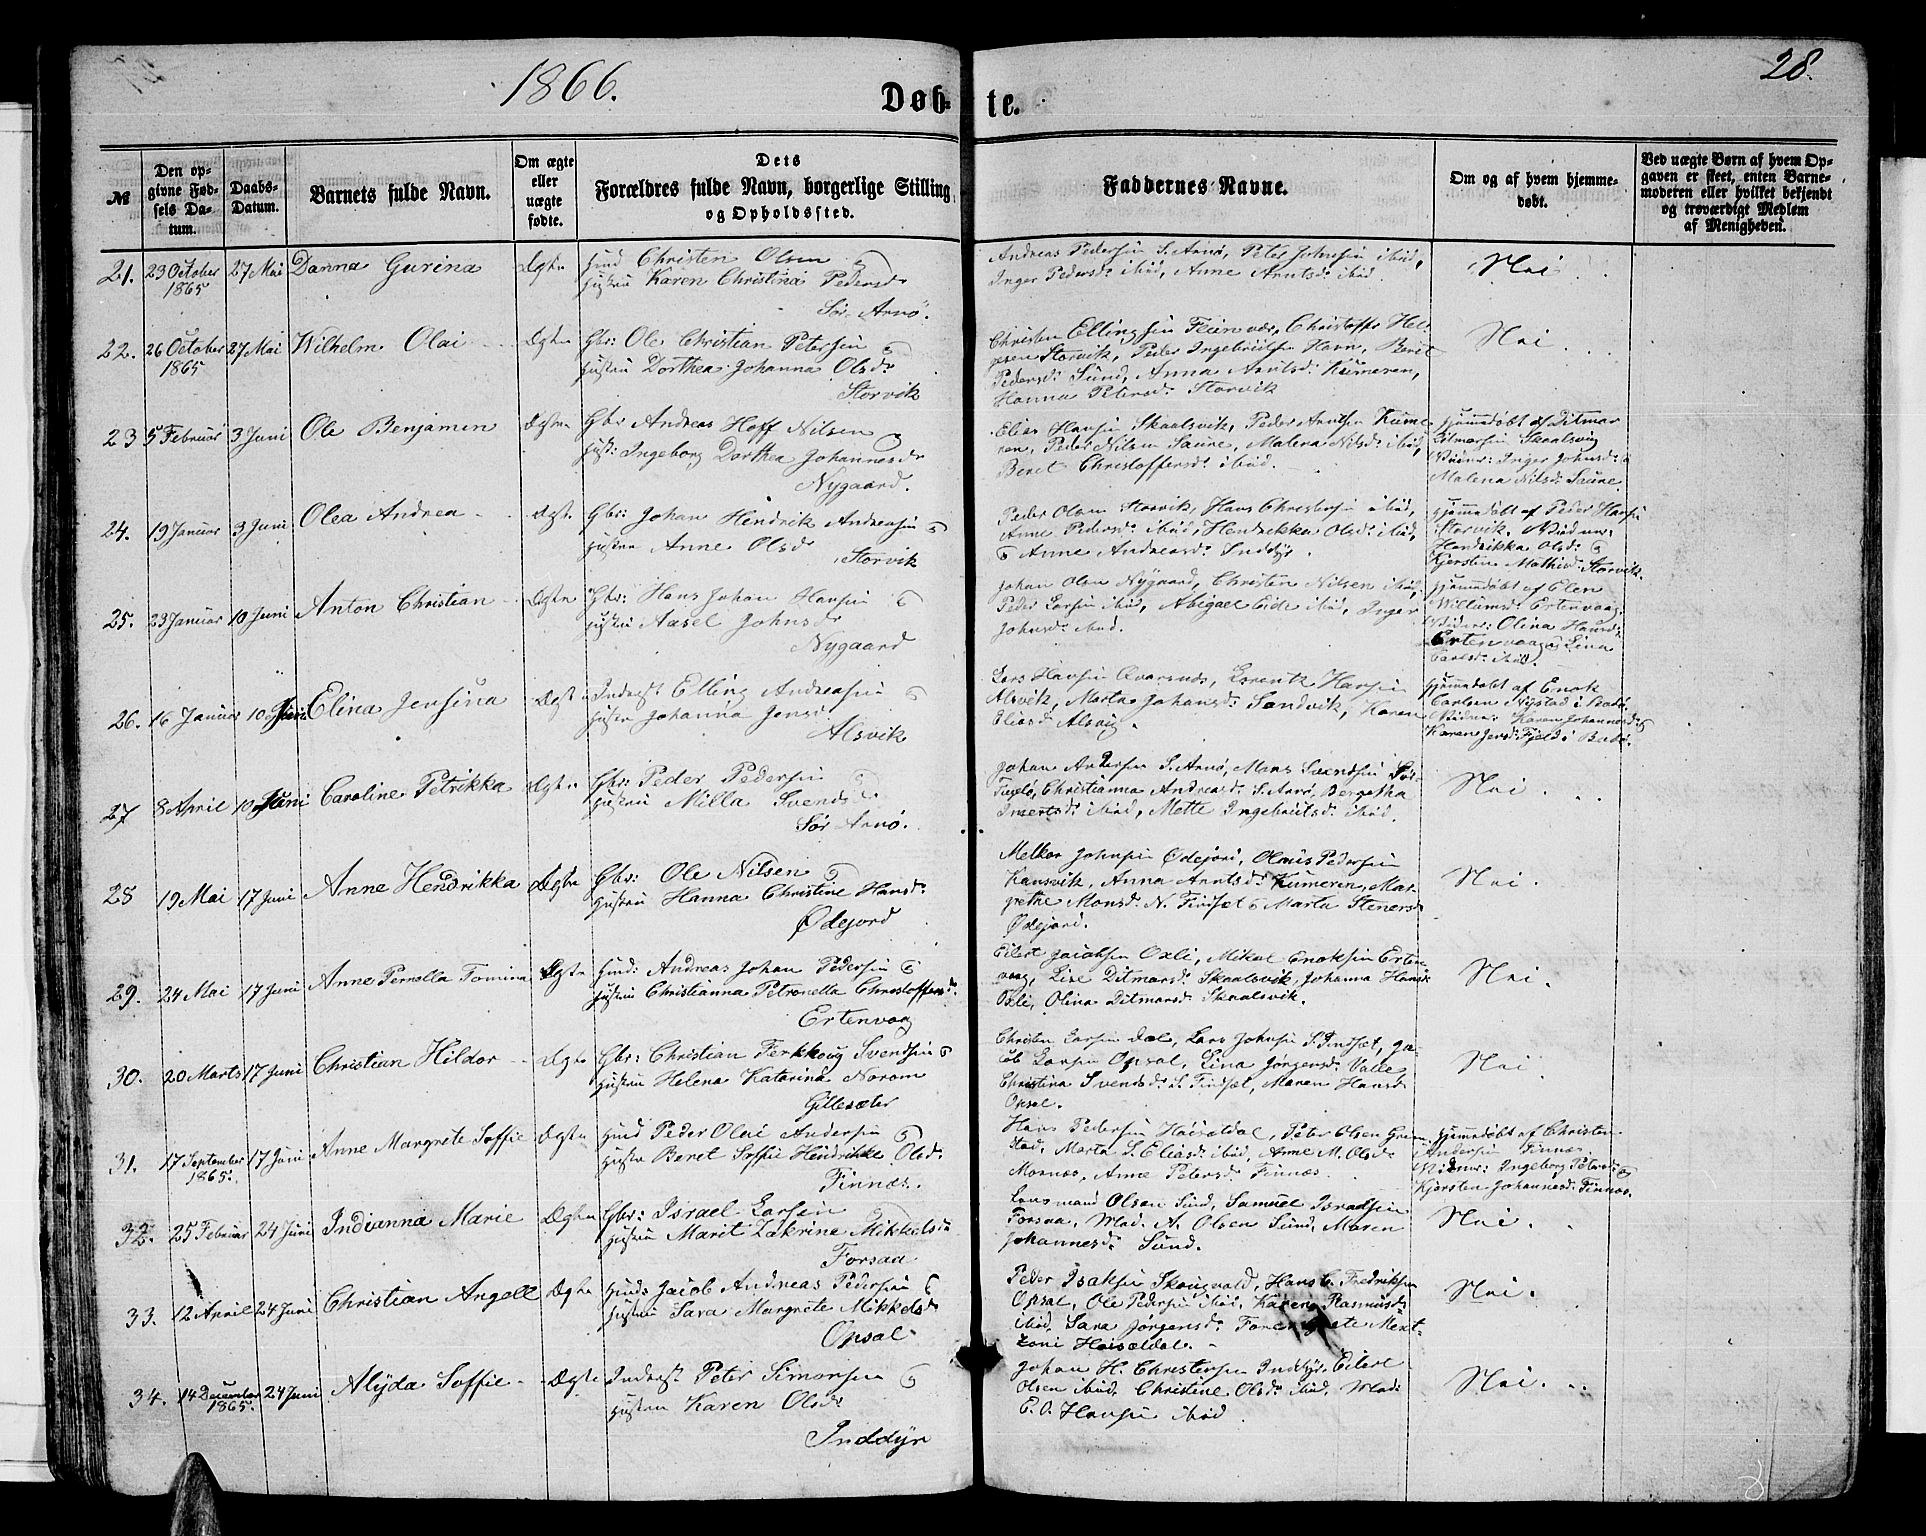 1866.
28.
Døb-te.
№
Den opgivne Fødsels Datum.
Daabs-Datum.
Barnets fulde Navn.
Om ægte eller uægte fødte.
Dets Forældres fulde Navn, borgerlige Stilling, og Opholdssted.
Faddernes Navne.
Om og af hvem hjemmedøbt.
Ved uægte Børn af hvem Opgaven er skeet, enten Barnemoderen eller hvilket bekjendt og troværdigt Medlem af Menigheden.
21. 23 October 1865 27 Mai Danna Gurina Ægte
Christen Olsen
Hustru Karen Christina Pedersd.
Sør Arnø.
Andreas Pedersen S. Arnø, Peter Johnsen ibid,
Inger Pedersd. ibid, Anne Arntsd. ibid.
Nei
22. 26 October 1865 27 Mai Wilhelm Olai Ægte
Gbr: Ole Christian Petersen
Hustru Dorthea Johanna Olsd.
Storvik
Christen Ellingsen Feinvær, Christoffer Hel-
gesen Storvik, Peder Ingebrigtsen Havn, Beret
Pedersd. Sund, Anna Arntsd. Kumeren,
Hanna Petersd. Storvik
Nei
23 5 Februar 3 Juni Ole Benjamin Ægte
Gbr Andreas Hoff Nilsen
Hust: Ingeborg Dorthea Johannesd.
Nygaard.
Elias Hansen Skaalsvik, Peder Arntsen Kume-
ren, Peder Nilsen Saure, Malena Nilsd. ibid,
Beret Christoffersd. ibid.
Hjemmedøbt af Ditmar
Ditmarsen Skaalsvig
Vidner: Inger Johnsd. &
Malena Nilsd. Saure.
24. 19 Januar 3 Juni Olea Andrea Ægte
Gbr: Johan Hendrik Andreasen &
Hustru Anne Olsd.
Storvik
Peder Olsen Storvik, Hans Christensen ibid,
Anne Pedersd. ibid, Hendrikka Olsd. ibid,
& Anne Andreasd. Inddyr.
Hjemmedøbt af Peder Hansen
Storvik. Vidner:
Hendrikka Olsd: &
Kjersten Mathisd. Storvik.
25. 23 Januar 10 Juni Anton Christian Ægte
Gbr: Hans Johan Hansen &
Hustru Aasel Johnsd.
Nygaard
Johan Olsen Nygaard, Christen Nilsen ibid,
Peder Larsen ibid, Abigael Eide ibid, Inger
Johnsd. ibid.
Hjemmedøbt af Elen
Willumsd. Ertenvaag.
Vidner: Olina Hansd.
Ertenvaag & Lina
Carlsd. ibid.
26. 16 Januar 10 Juni Elina Jensina Ægte
Inderst Elling Andreasen &
Hustru Johanna Jensd.
Alsvik
Lars Hansen Qvarsnes, Lorentz Hansen
Alsvik, Marta Johansd. Sandvik, Karen
Eliasd. Alsvig.
Hjemmedøbt af Enok
Carlsen Nystad i Bodø.
Vidner: Karen Johannesd. &
Karen Jensd. Fjeld i Bodø.
27 8 April 10 Juni Caroline Petrikka Ægte
Gbr: Peder Pedersen &
Hustru Milla Svendsd.
Sør Arnø.
Johan Andersen S. Arnø, Mons Svendsen Sør-
Fuglø, Christianna Andreasd. S. Arnø, Bergetha
ibid, Mette Ingebrigtsd. ibid.
Nei
28 19 Mai 17 Juni Anne Hendrikka Ægte
Gbr: Ole Nilsen &
Hustru Hanna Christine Hansd.
Ødejord
Melkor Johnsen Ødejord, Olaus Pedersen
Kansvik, Anna Arntsd. Kumeren, Mar-
grethe Monsd. N. Findset & Marta Stenersd.
Ødejord.
Nei.
29. 24 Mai 17 Juni Anne Pernella Tomina Ægte
Hmd: Andreas Johan Pedersen &
Hustru Christianna Petronella Christoffersd.
Ertenvaag
Eilert Jacobsen Oxli, Mikal Enoksen Erten-
vaag, Lise Ditmarsd. Skaalsvik, Johanna Hansd.
Oxli, Olina Ditmarsd. Skaalsvik.
Nei.
30. 20 Marts 17 Juni Christian Hildor Ægte
Gbr: Christian Ferkoug Svendsen &
Hustru Helena Katarina Norom
Gillesæter
Christen Larsen Dal, Lars Johnsen S. Findset, Ja-
cob Larsen Opsal, Lina Jørgensd. Valle,
Christina Svendsd. S. Findset, Maren Hansd.
Opsal.
Nei.
31. 17 September 1865. 17 Juni Anne Margrete Soffie Ægte
Hmd Peder Olai Andersen &
Hustru Beret Soffie Hendrikke Olsd.
Finnæs.
Hans Pedersen Høisædal, Peter Olsen Gren-
stad, Marta S. Eliasd. ibid, Anne M. Olsd.
Mosnæs, Anne Petersd. Finnæs.
Hjemmedøbt af Christen
Andersen Finnæs.
Vidner: Ingeborg Petersd. &
Kjersten Johannesd. Finnæs.
32. 25 Februar 24 Juni Indianna Marie Ægte
Gbr: Israel Larsen &
Hustru Marit Zakrine Mikkelsd.
Forsaa
Lensmand Olsen Sund, Samuel Israelsen
Forsaa, Mad. A. Olsen Sund, Maren
Johannesd. Sund.
Nei.
33. 12 April 24 Juni Christian Angell Ægte
Jacob Andreas Pedersen &
Hustru Sara Margrete Mikkelsd.
Opsal.
Peder Isaksen Skougvold, Hans C. Fredriksen
Opsal, Ole Pedersen ibid, Karen Rasmusd.
ibid, Sara Jørgensd. Ment-
zoni Høisædal.
Nei.
34. 14 December 1865. 24 Juni Alyda Soffie Ægte
Inderst Peter Simonsen &
Hustru Karen Olsd.
Inddyr
Johan H. Christensen Inddyr, Eilert
Olsen ibid, Christine Olsd. ibid, Mad.
E. O. Hansen ibid.
Nei.